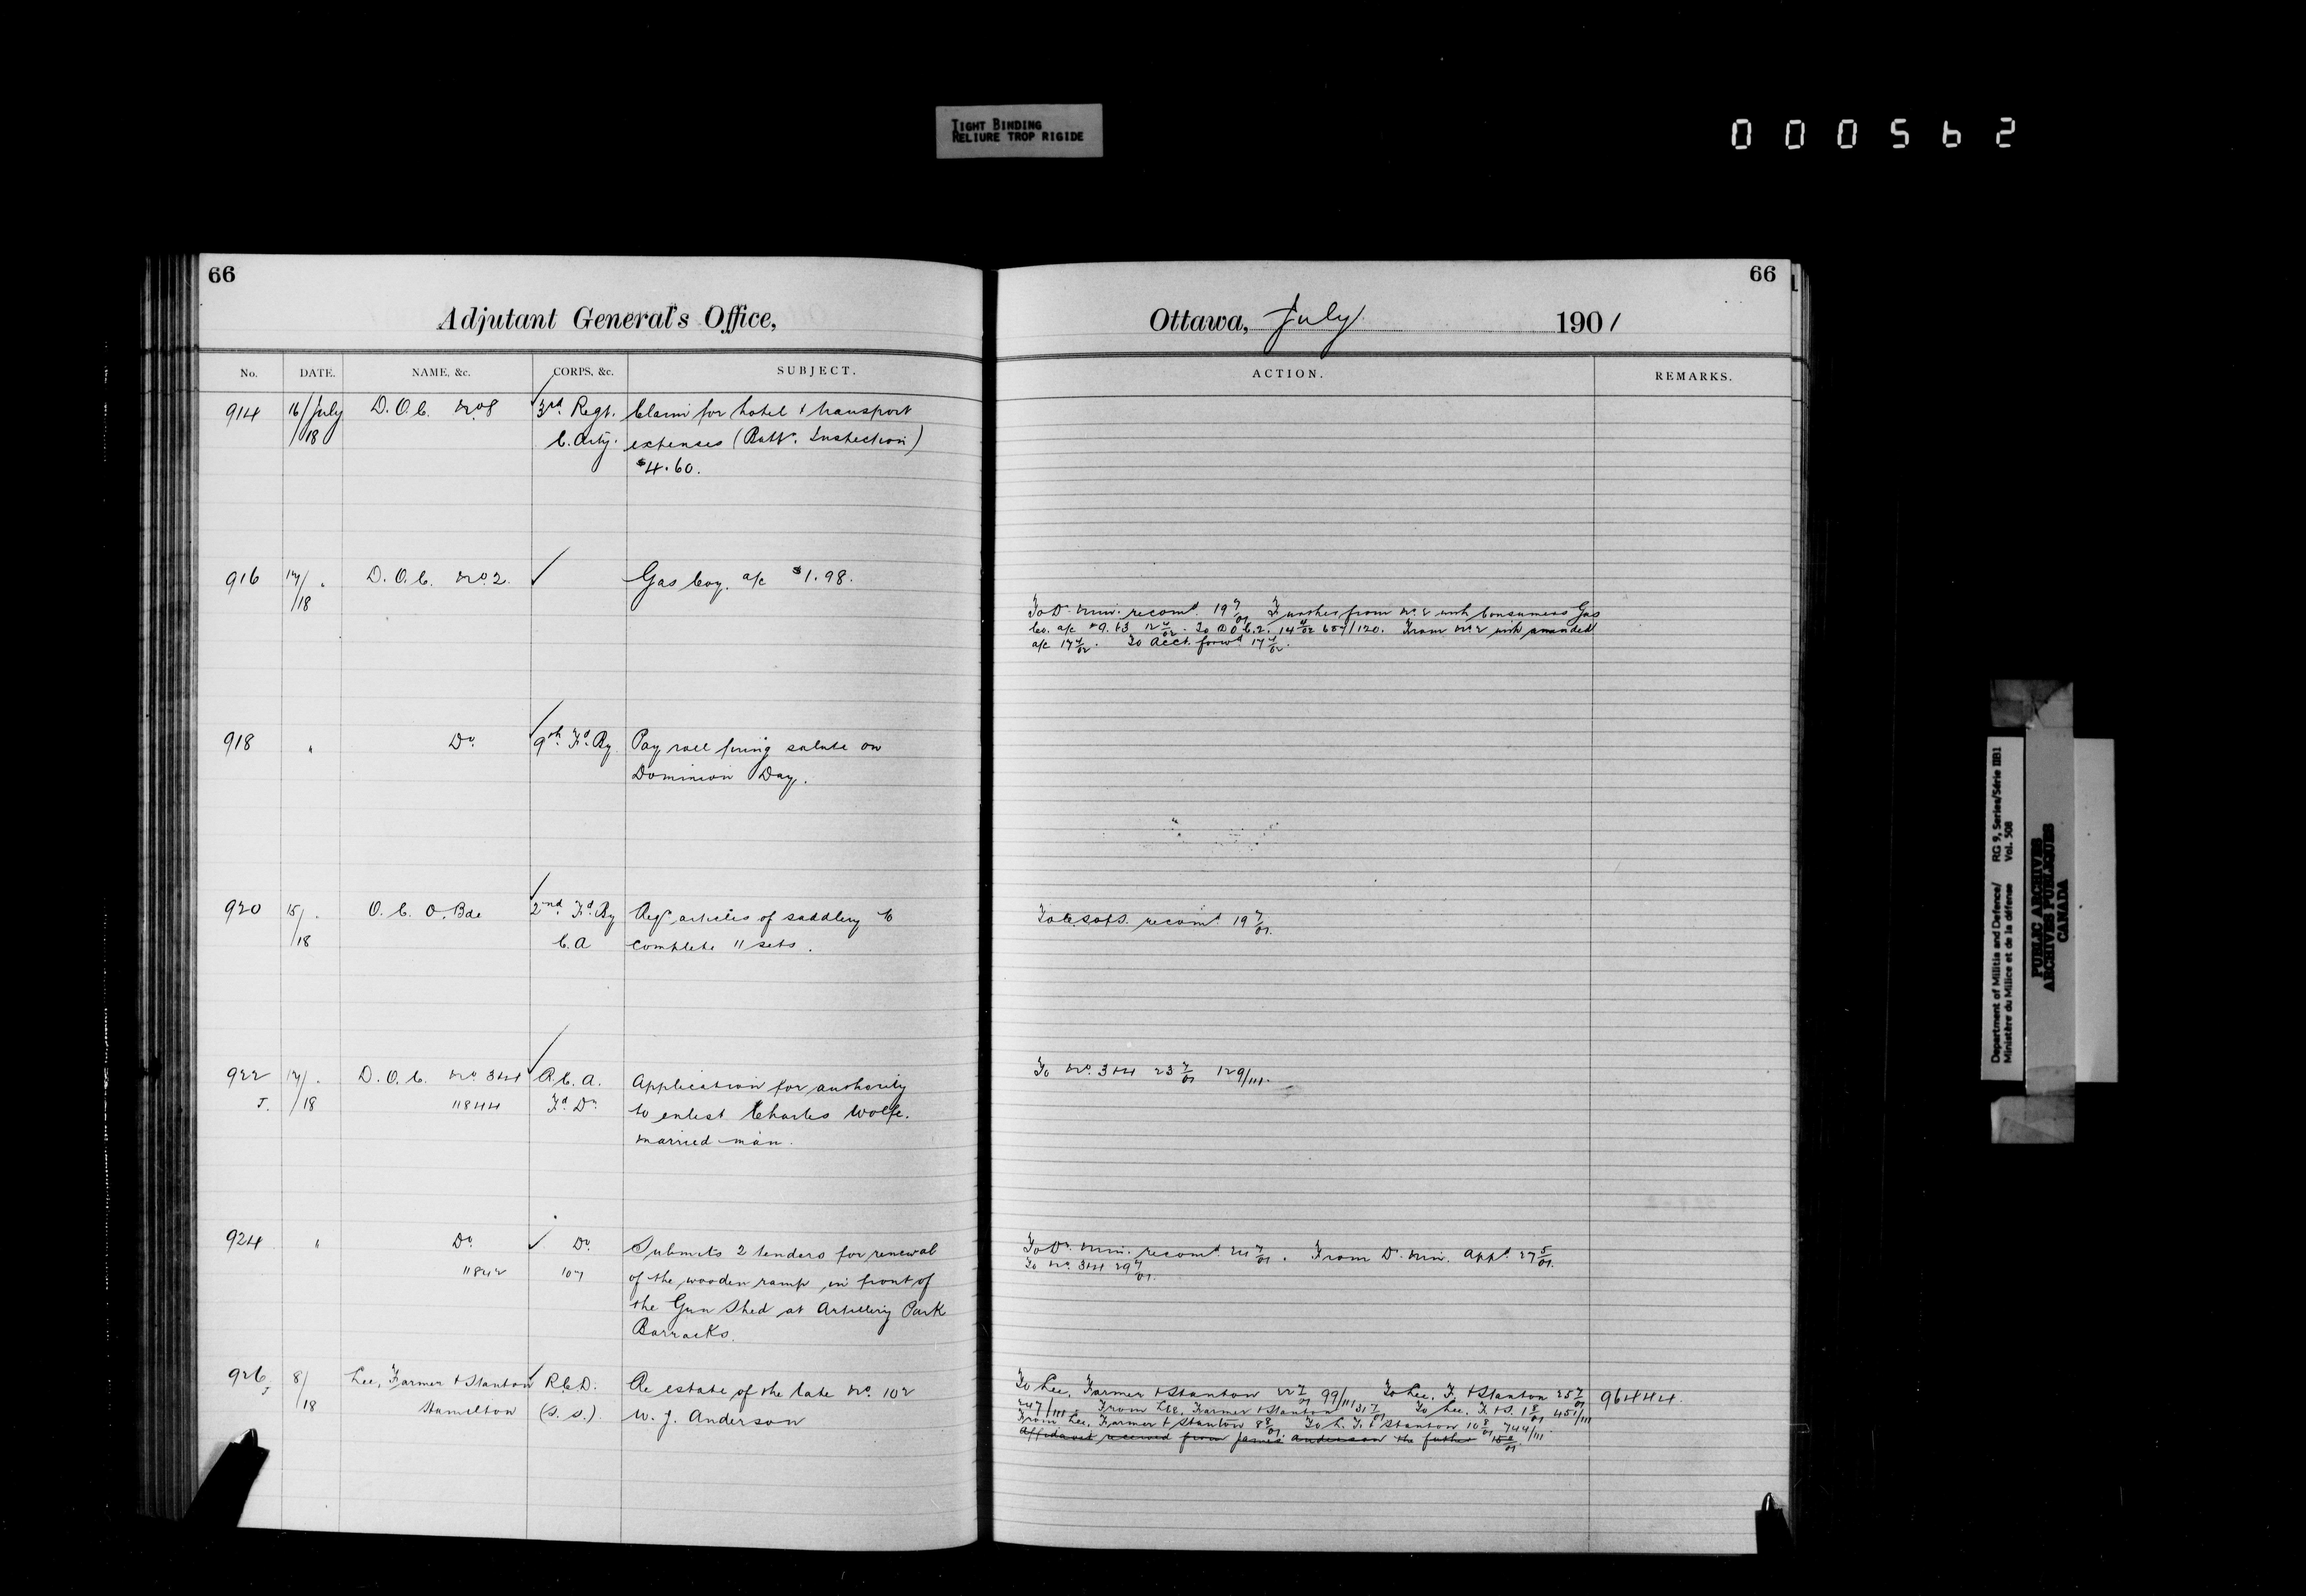 TIGHT BINDING
RELIURE TROP RIGIDE
000562
66
Adjutant General's Office,
No. DATE. NAME, &c. CORPS, &c. SUBJECT.
914 16/July D.O.C. No 8 3rd Regt. Claim for hotel & transport
/18 C. Arty. expenses (Batty. Inspection)
$4.60.
916 17/ " D.O.C. No. 2. ✓ Gas Coy. a/c $1.98.
/18
918 " Do. 9th Fd. By. Pay roll firing salute on
Dominion Day.
920 15/ " O.C. O. Bde 2nd Fd. By Reqn articles of saddlery to
/18 C.A complete 11 sets.
922 17/ " D.O.C. No. 3&4 R.C.A. Application for authority
J. /18 11844 Fd. Dn. to enlist Charles Wolfe.
married man.
924 " Do. ✓ Do. Submits 2 tenders for renewal
11842 107 of the wooden ramp in front of
the Gun Shed at Artillery Park
Barracks.
926 8/ Lee, Farmer & Stanton R.C.D. Re estate of the late No. 102
J /18 Hamilton (S.S.). W. J. Anderson
66
Ottawa, July 1901
ACTION. REMARKS.
To D. Min. recomd. 19 7/01 Further from No. 2 with Consumers Gas
Co. a/c 12 4/02. To D.O.C. 2. 14 4/02 657/120. From No. 2 with amended
a/c 17 4/02. To Acct. forwd 17 4/02.
recomd. 19 7/01.
To No. 3&4 23 7/01 129/111.
To D. Min. recomd. 24 7/01. From D. Min. appd. 27 5/01.
To No. 3&4 29 7/01.
To Lee, Farmer & Stanton 22 7/01 99/111 To Lee, F. & Stanton 25 7/01 96444.
247/111. From Lee, Farmer & Stanton 31 7/01 To Lee, F. & S. 1 8/01 451/111
From Lee, Farmer & Stanton 8 8/01. To L. F. & Stanton 10 8/01 744/111.
Affidavit received from James Anderson the father
Department of Militia and Defence/ RG 9, Series/Série IIB1
Ministère du Milice et de la défense Vol. 508
PUBLIC ARCHIVES
ARCHIVES PUBLIQUES
CANADA